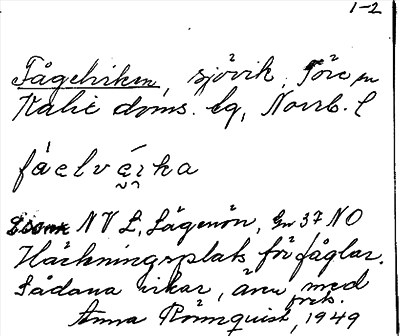 1-2
Fågelviken, sjövik, Töre sn
Kalix doms. lg, Norrb. l
fáelvẹ́rka
NV L. Lägenön, Gn 37 NO
Häckningsplats för fåglar.
Sådana vikar, även med
preb.
Anna Rönnquist, 1949